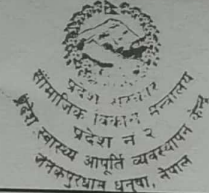 प्रदेश सरकार
सामाजिक विकास मन्त्रालय
प्रदेश नं २
प्रदेश स्वास्थ्य आपूर्ति व्यवस्थापन केन्द्र
जनकपुरधाम धनुषा, नेपाल